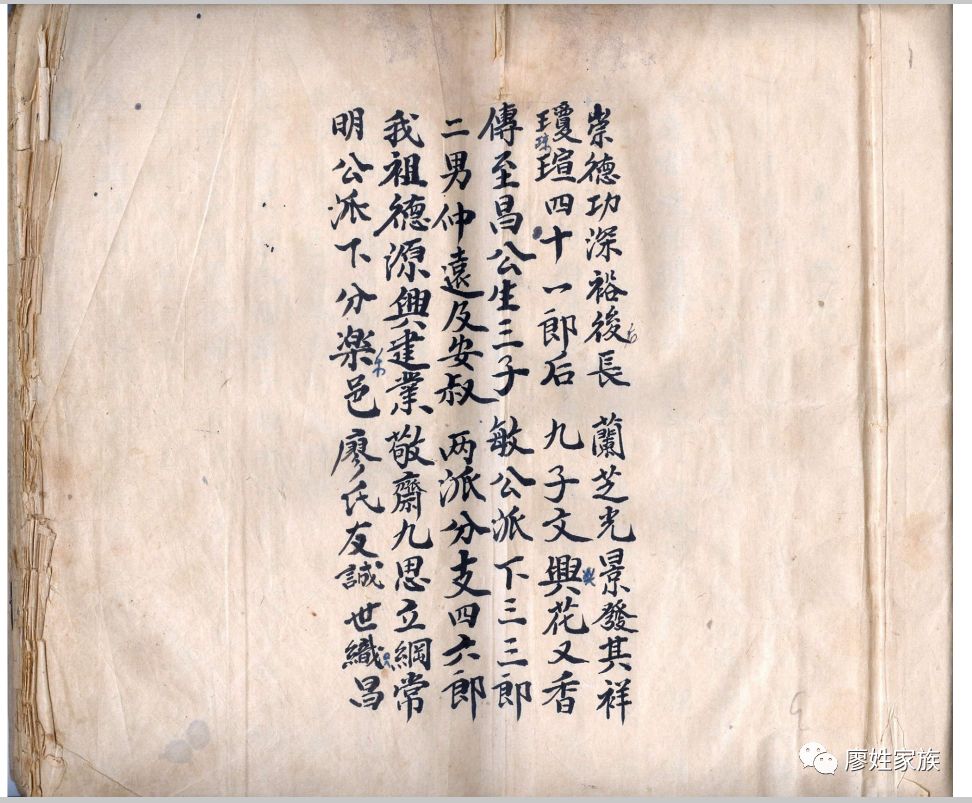 崇德功深裕後長 蘭芝光景發其祥
瓊瑄四十一郎后 九子文興花又香
傳至昌公生三子 敏公派下三三郎
二男仲遠及安叔 两派分支四六郎
我祖德源興建業 敬齋九思立綱常
明公派下分楽邑 廖氏友誠世織昌
廖姓家族